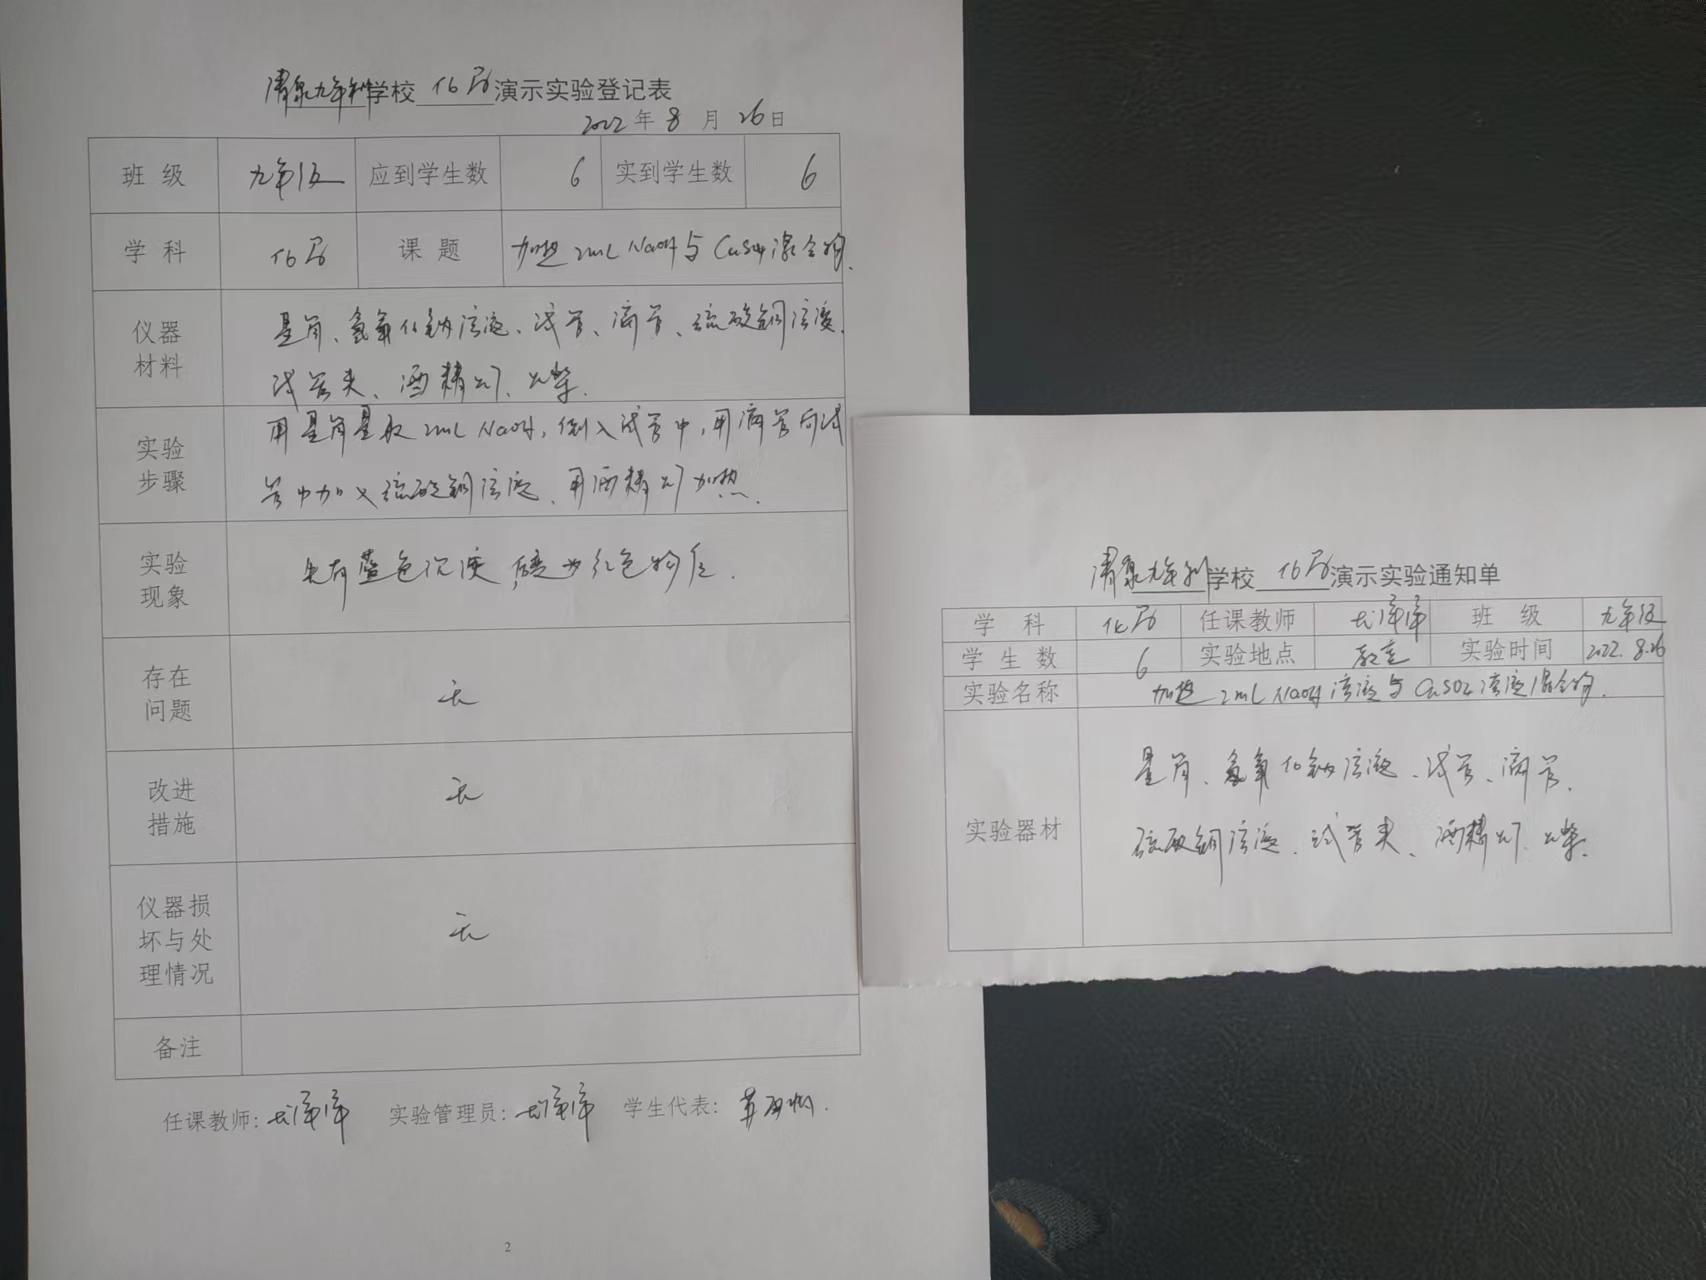 清泉九年制学校 化学 演示实验登记表
2022 年 8 月 26 日
班 级 九年级 应到学生数 6 实到学生数 6
学 科 化学 课 题 加热 2mL NaOH 与 CuSO4 混合物.
仪器材料
量筒、氢氧化钠溶液、试管、滴管、硫酸铜溶液.
试管夹、酒精灯、火柴.
实验步骤
用量筒量取 2mL NaOH, 倒入试管中, 用滴管向试
管中加入硫酸铜溶液、用酒精灯加热.
实验现象
先有蓝色沉淀, 后变为红色物质.
存在问题
无
改进措施
无
仪器损坏与处理情况
无
备注
任课教师: 实验管理员: 学生代表:
2
清泉九年制学校 化学 演示实验通知单
学 科 化学 任课教师 班 级 九年级
学 生 数 6 实验地点 教室 实验时间 2022.8.26
实验名称 加热 2mL NaOH 溶液与 CuSO2 溶液混合物.
实验器材
量筒、氢氧化钠溶液、试管、滴管、
硫酸铜溶液、试管夹、酒精灯、火柴.